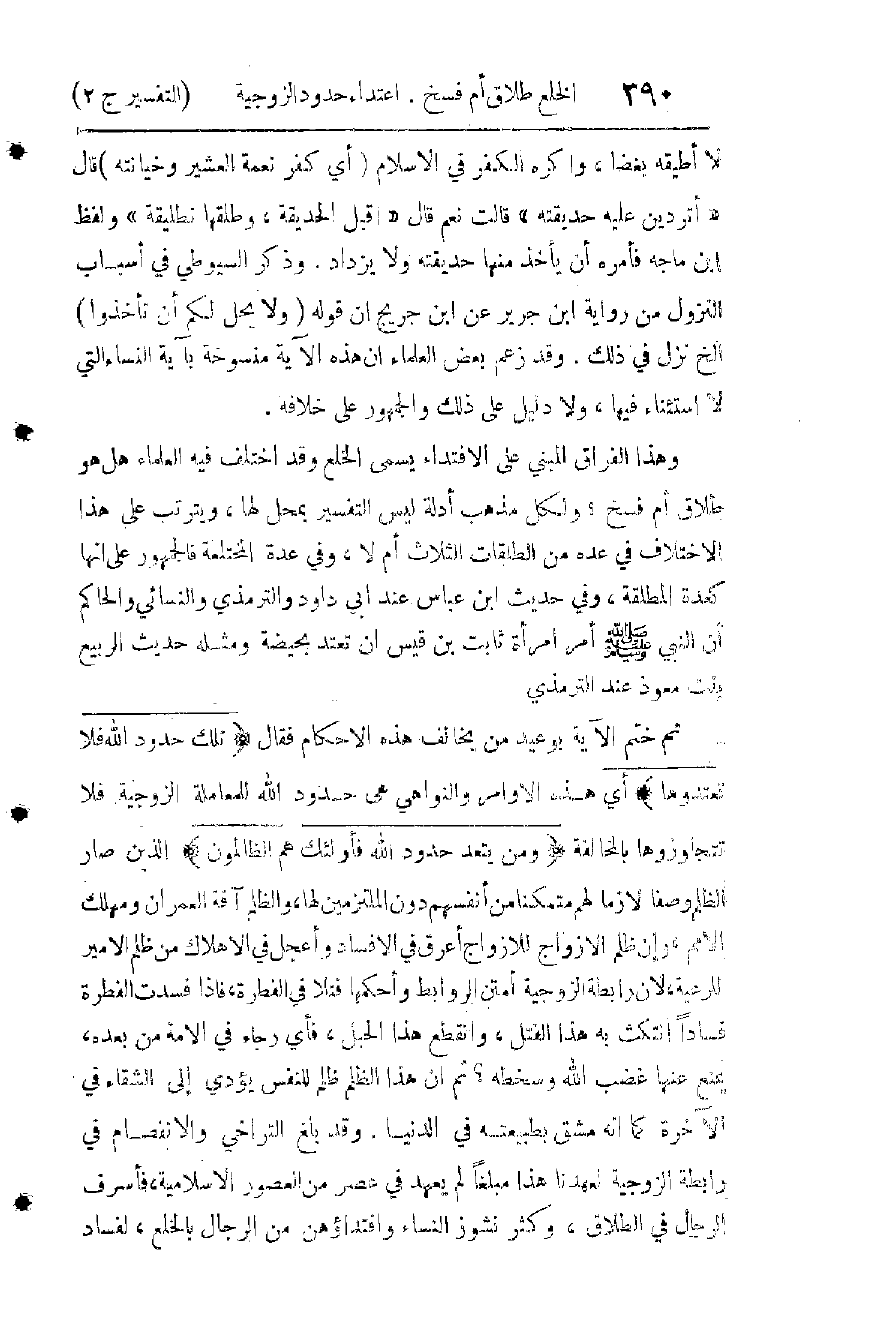 ٣٩٠ الخلع طلاق أم فسخ . اعتداء حدود الزوجية (التفسير ج ٢)
لا أطيقه بغضا ، واكره الكفر في الاسلام ( أي كفر نعمة العشير وخيانته ) قال
« أتردين عليه حديقته » قالت نعم قال « اقبل الحديقة ، وطلقها تطليقة » ولفظ
ابن ماجه فأمره أن يأخذ منها حديقته ولا يزداد . وذكر السيوطي في أسباب
النزول من رواية ابن جرير عن ابن جريج ان قوله ( ولا يحل لكم أن تأخذوا )
الخ نزل في ذلك . وقد زعم بعض العلماء ان هذه الآية منسوخة بآية النساء التي
لا استثناء فيها ، ولا دليل على ذلك والجمهور على خلافه .
وهذا الفراق المبني على الافتداء يسمى الخلع وقد اختلف فيه العلماء هل هو
طلاق أم فسخ ؟ ولكل مذهب أدلة ليس التفسير بمحل لها ، ويترتب على هذا
الاختلاف في عده من الطلقات الثلاث أم لا ، وفي عدة المختلعة فالجمهور على انها
كعدة المطلقة ، وفي حديث ابن عباس عند ابي داود والترمذي والنسائي والحاكم
أن النبي ﷺ أمر امرأة ثابت بن قيس ان تعتد بحيضة ومثله حديث الربيع
بنت معوذ عند الترمذي
ثم ختم الآية بوعيد من يخالف هذه الاحكام فقال ﴿ تلك حدود الله فلا
تعتدوها ﴾ أي هذه الاوامر والنواهي هي حدود الله للمعاملة الزوجية فلا
تتجاوزوها بالمخالفة ﴿ ومن يتعد حدود الله فأولئك هم الظالمون ﴾ الذين صار
الظلم وصفا لازما لهم متمكنا من أنفسهم دون الملتزمين لها ، والظلم آفة العمران ومهلك
الامم ، وإن ظلم الازواج للازواج أعرق في الافساد وأعجل في الاهلاك من ظلم الامير
للرعية ، لان رابطة الزوجية أمتن الروابط وأحكمها فتلا في الفطرة ، فاذا فسدت الفطرة
فساداً انتكث به هذا الفتل ، وانقطع هذا الحبل ، فأي رجاء في الامة من بعده ،
يمنع عنها غضب الله وسخطه ؟ ثم ان هذا الظلم ظلم للنفس يؤدي إلى الشقاء في
الآخرة كما انه مشق بطبيعته في الدنيا . وقد بلغ التراخي والانفصام في
رابطة الزوجية لعهدنا هذا مبلغاً لم يعهد في عصر من العصور الاسلامية ، فأسرف
الرجال في الطلاق ، وكثر نشوز النساء وافتداؤهن من الرجال بالخلع ، لفساد